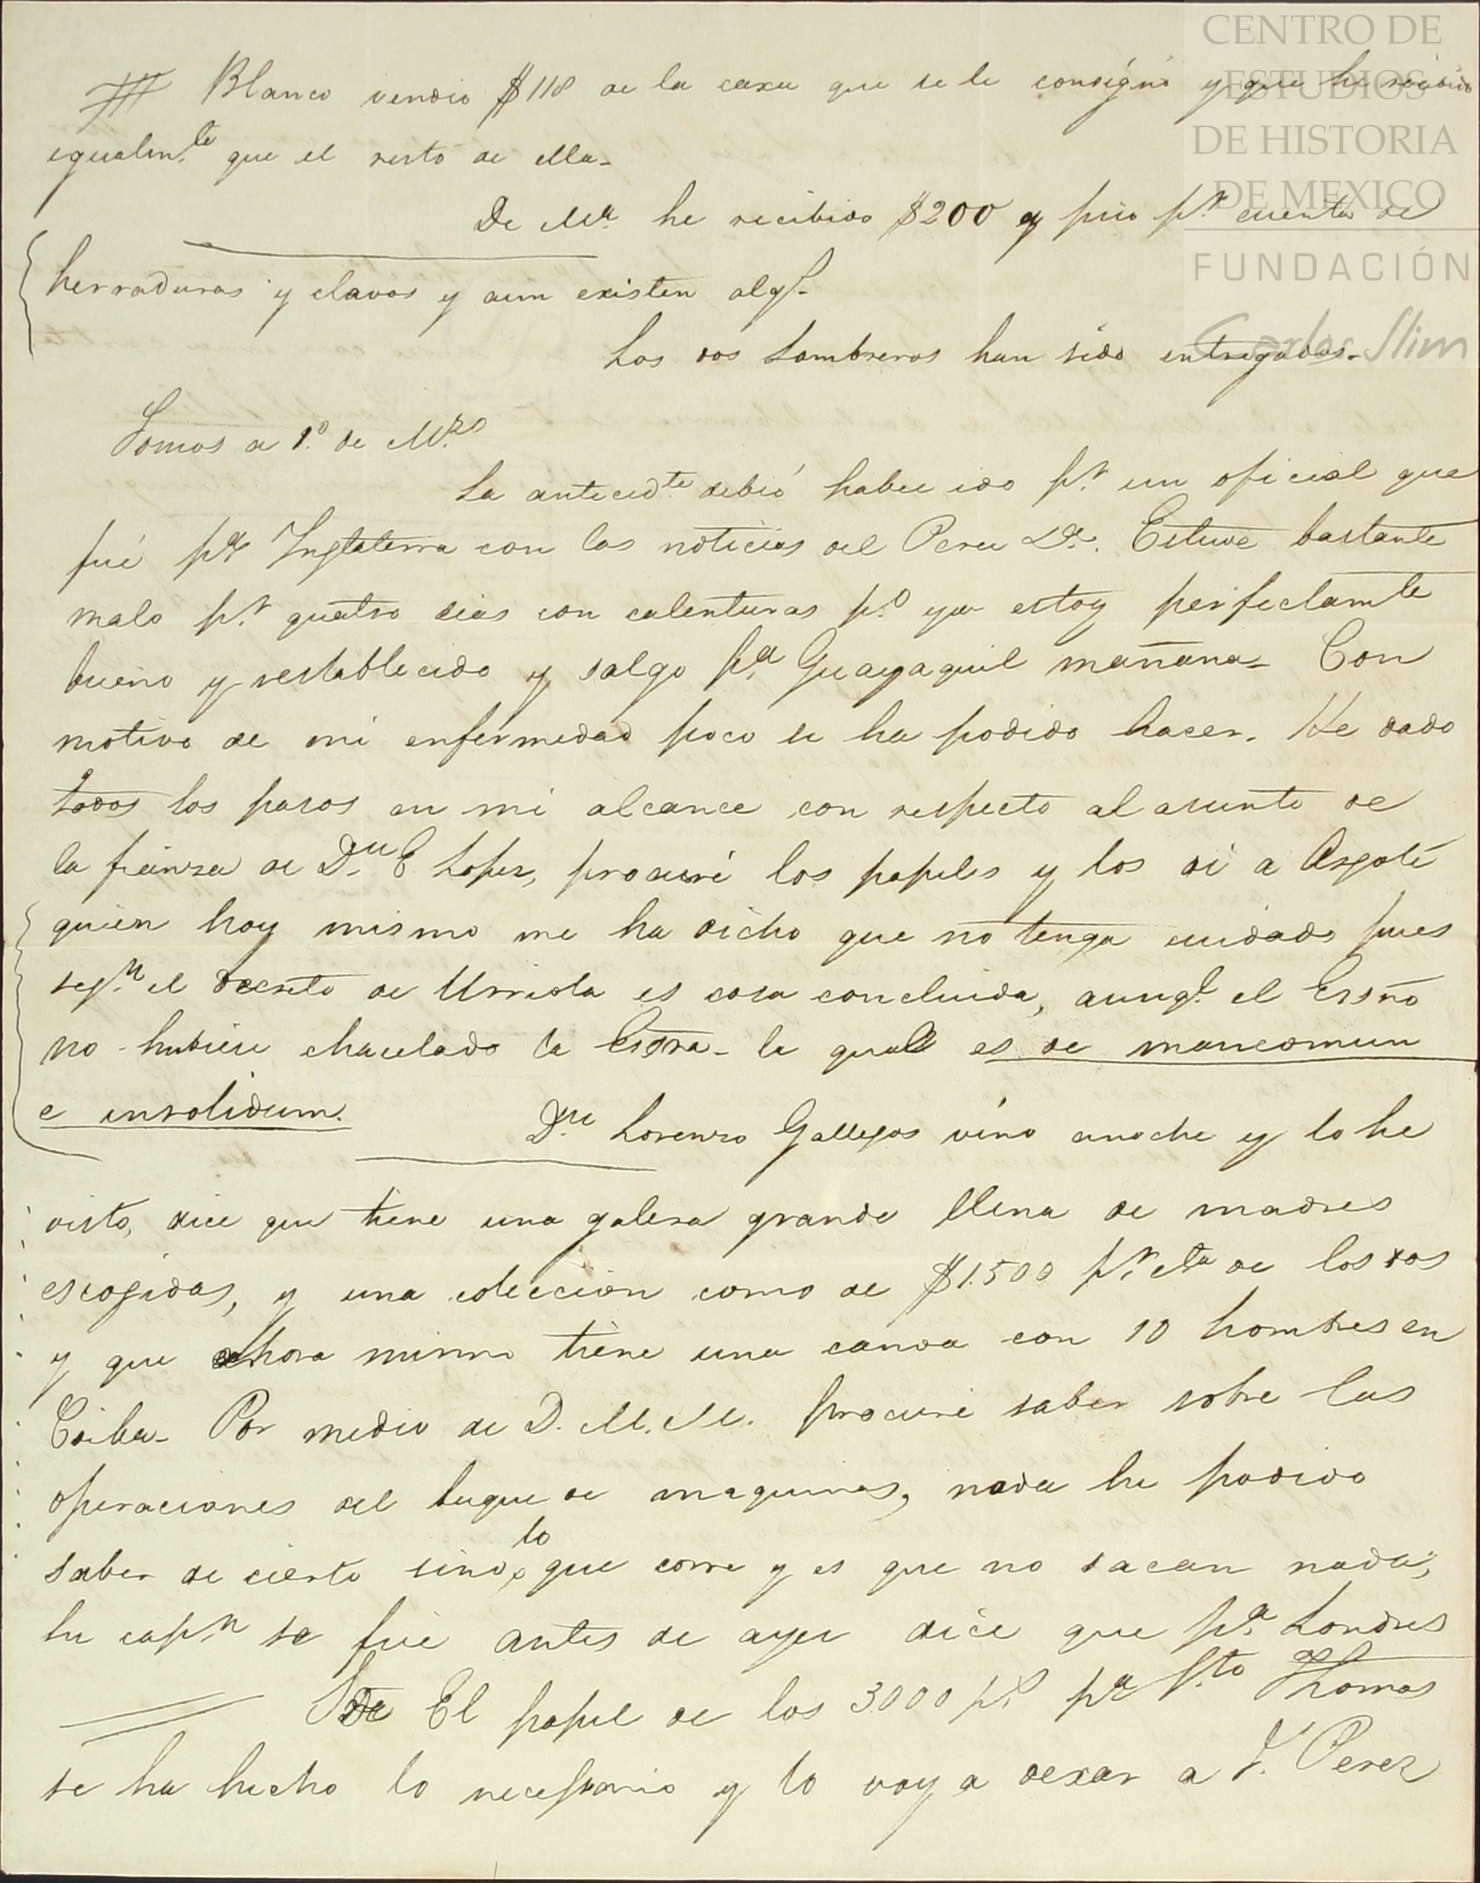 CENTRO DE
ESTUDIOS
DE HISTORIA
DE MEXICO
FUNDACIÓN
Carlos Slim
Blanco vendio $118 de la caxa que se le consignó y que he recibido
igualm.te que el resto de ella-
De Ma. he recibido $200 y pico pr. cuenta de
herraduras y clavos y aun existen algs.-
Los dos Sombreros han sido entregados.-
Somos a 1º. de Mzo.
La antecedte debió haber ido pr. un oficial que
fué para Inglaterra con las noticias del Peru &a. Estuve bastante
malo pr. quatro dias con calenturas po. ya estoy perfectamte
bueno y restablecido y salgo pa. Guayaquil mañana- Con
motivo de mi enfermedad poco se ha podido hacer. He dado
todos los pasos en mi alcance con respecto al asunto de
la fianza de Dn. E Lopez, procuré los papeles y los di a Argoté
quien hoy mismo me ha dicho que no tenga cuidado pues
segn. el decreto de Urriola es cosa concluida, aunqe. el Essño
no hubiese chancelado la Essra- la qual es de mancomun
e insolidum.
Dn. Lorenzo Gallegos vino anoche y lo he
visto, dice que tiene una galera grande llena de madres
escogidas, y una coleccion como de $1.500 pr. cta de los dos
y que ahora mismo tiene una canoa con 10 hombres en
Coiba- Por medio de D. M. M. procuré saber sobre las
operaciones del buque de maquinas, nada he podido
saber de cierto sino lo que corre y es que no sacan nada;
su capn. se fué antes de ayer dice que pa. Londres
El papel de los 3000 ps. pa Sto. Thomas
se ha hecho lo necessario y lo voy a dexar a J. Perez